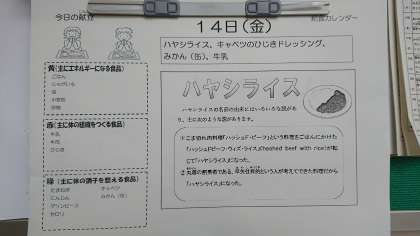 今日の献立
給食カレンダー
14日(金)
ハヤシライス、キャベツのひじきドレッシング、
みかん(缶)、牛乳
黄(主にエネルギーになる食品)
ごはん
じゃがいも
油
小麦粉
砂糖
赤(主に体の組織をつくる食品)
牛乳
牛肉
ひじき
緑(主に体の調子を整える食品)
たまねぎ キャベツ
にんじん みかん(缶)
グリンピース
セロリ
ハヤシライス
ハヤシライスの名前の由来にはいろいろな説があ
り、主に次のような説があります。
①こま切れ肉料理「ハッシュド・ビーフ」という料理をごはんにかけた
「ハッシュドビーフ・ウィズ・ライス」(hashed beef with rice)が転
じて「ハヤシライス」になった。
②丸善の創業者である、早矢仕有的という人が考えてできた料理だから
「ハヤシライス」になった。